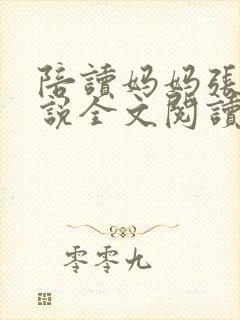 陪讀妈妈張
說全文閱讀
零零九